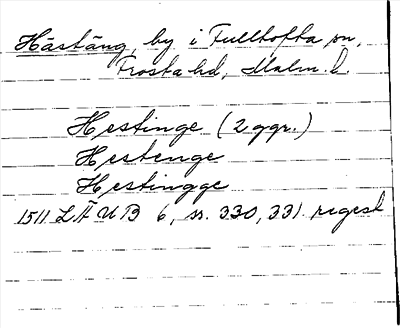 Hästäng, by i Fulltofta sn,
Frosta hd, Malm. l.
Hestinge (2 ggr.)
Hestenge
Hestingge
1511 LÄUB 6, ss. 330, 331. regest